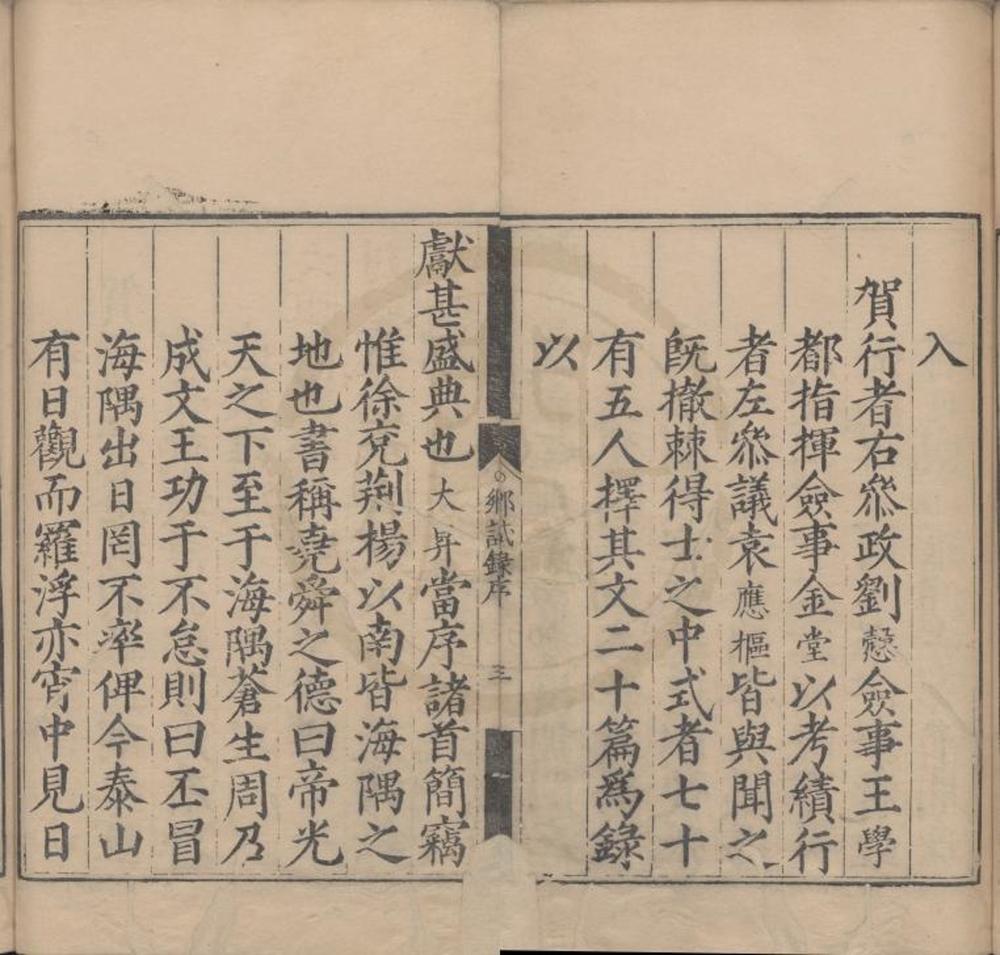 入
賀行者右叅政劉慤僉事王學
都指揮僉事金堂以考績行
者左叅議袁應樞皆與聞之
旣撤棘得士之中式者七十
有五人擇其文二十篇爲錄
以
鄉試錄序 三
獻甚盛典也大昇當序諸首簡竊
惟徐兗荊楊以南皆海隅之
地也書稱堯舜之德曰帝光
天之下至于海隅蒼生周乃
成文王功于不怠則曰丕冒
海隅出日罔不率俾今泰山
有日觀而羅浮亦宵中見日